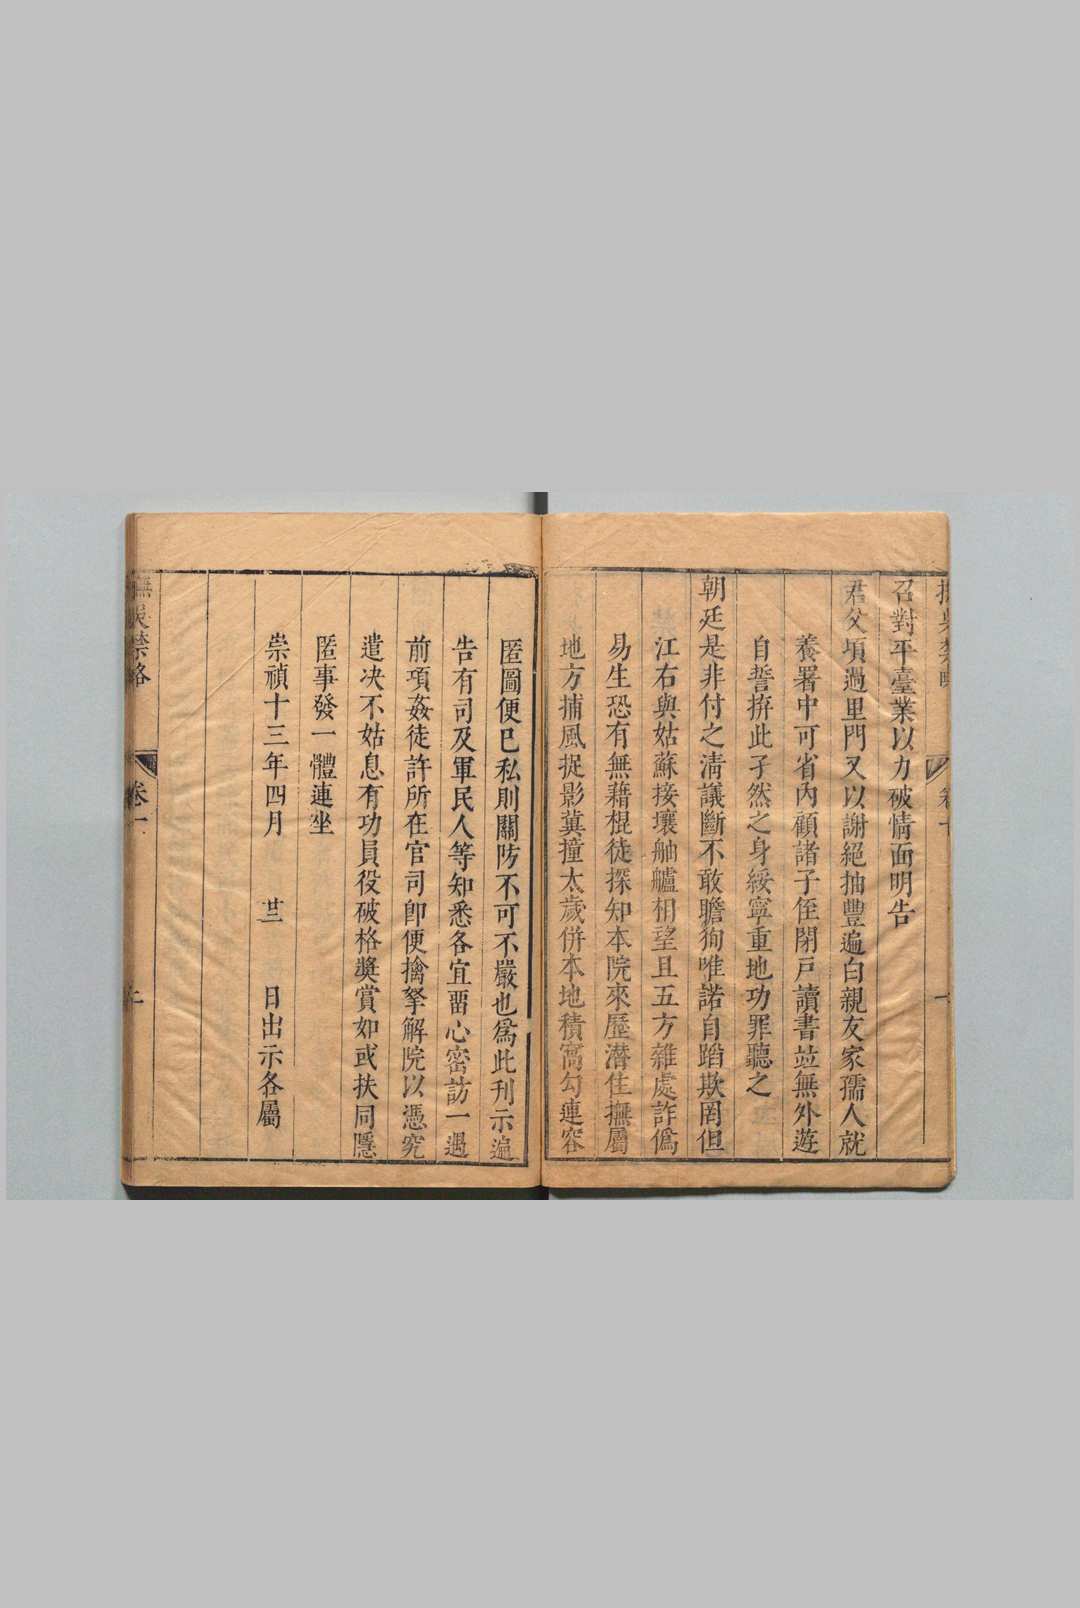 召對平臺業以力破情面明告
君父頃過里門又以謝絕抽豐遍白親友家孺人就
養署中可省內顧諸子侄閉戶讀書並無外遊
自誓拚此孑然之身綏寧重地功罪聽之
朝廷是非付之清議斷不敢瞻徇唯諾自蹈欺罔但
江右與姑蘇接壤舳艫相望且五方雜處詐僞
易生恐有無藉棍徒探知本院來歷潛住撫屬
地方捕風捉影冀撞太歲併本地積窩勾連容
匿圖便已私則關防不可不嚴也爲此刊示遍
告有司及軍民人等知悉各宜畱心密訪一遇
前項姦徒許所在官司卽便擒拏解院以憑究
遣决不姑息有功員役破格獎賞如或扶同隱
匿事發一體連坐
崇禎十三年四月 廿三 日出示各屬
撫吳禁略 卷一